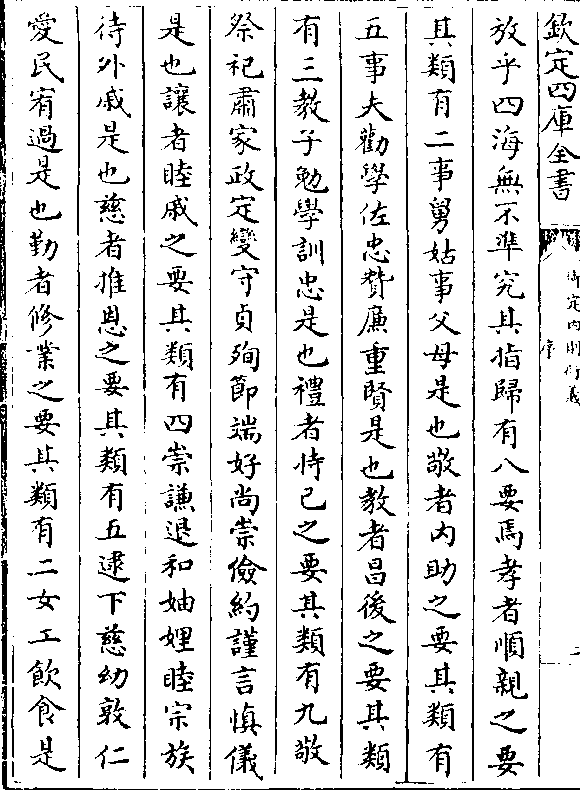 欽定四庫全書
御定內則衍義
序
二
放乎四海無不準究其指歸有八要焉孝者順親之要
其類有二事舅姑事父母是也敬者内助之要其類有
五事夫勸學佐忠贊廉重賢是也教者昌後之要其類
有三教子勉學訓忠是也禮者持己之要其類有九敬
祭祀肅家政定變守貞殉節端好尚崇儉約謹言慎儀
是也讓者睦戚之要其類有四崇謙退和妯娌睦宗族
待外戚是也慈者推恩之要其類有五逮下慈幼敦仁
愛民宥過是也勤者修業之要其類有二女工飲食是